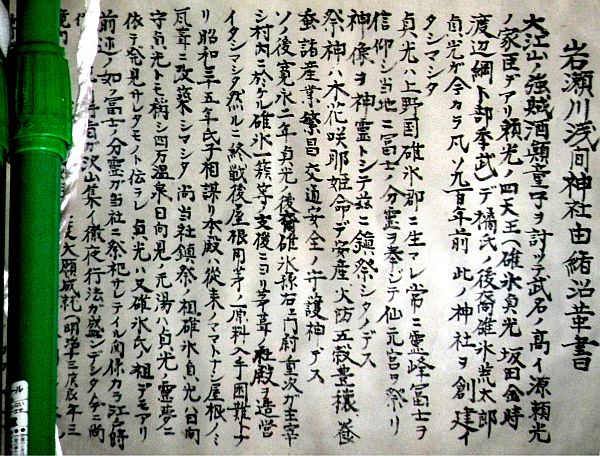 岩瀬川浅間神社由緒沿革書
大江山ノ強賊酒顛童子ヲ討ッテ武名ノ高イ源頼光
ノ家臣デアリ頼光ノ四天王(碓氷貞光 坂田金時
渡辺綱 卜部季武)デ橘氏ノ後裔碓氷荒太郎
貞光が今カラ凡ソ九百年前 此ノ神社ヲ創建イ
タシマシタ
貞光ハ上野国碓氷郡ニ生マレ常ニ霊峰冨士ヲ
信仰シ当地ニ冨士ノ分霊ヲ奉ジテ仙元宮ヲ祭リ
神像ヲ神霊トシテ茲ニ鎮祭シタノデス
祭神ハ木花咲耶姫命デ安産 火防 五穀豊穣 養
蚕 諸産業繁昌 交通安全ノ守護神デス
ソノ後寛永二年 貞光ノ後裔碓氷縣右ェ門尉 重次が主宰
シ村内ニ於ケル碓氷一族等ノ支援ニヨリ茅葺ノ社殿ヲ造営
イタシマシタ然ルニ終戦後屋根用茅ノ原料入手困難トナ
リ昭和三十五年氏子相謀リ本殿ハ従来ノママトタン屋根ノミ
瓦葺ニ改築シマシタ 尚当社鎮祭ノ祖碓氷貞光ハ日向
守貞光トモ称シ四万温泉日向見ノ元湯ハ貞光ノ霊夢ニ
依テ発見サレタモノト伝ヘラレ 貞光ハ又碓氷氏ノ祖デモアリ
前述ノ如ク冨士ノ分霊が当社ニ祭祀サレテイル関係カラ江戸時
者が沢山集イ徹夜行法が盛ンデシタ 尚
大願成就 明治十三庚辰年三
境内